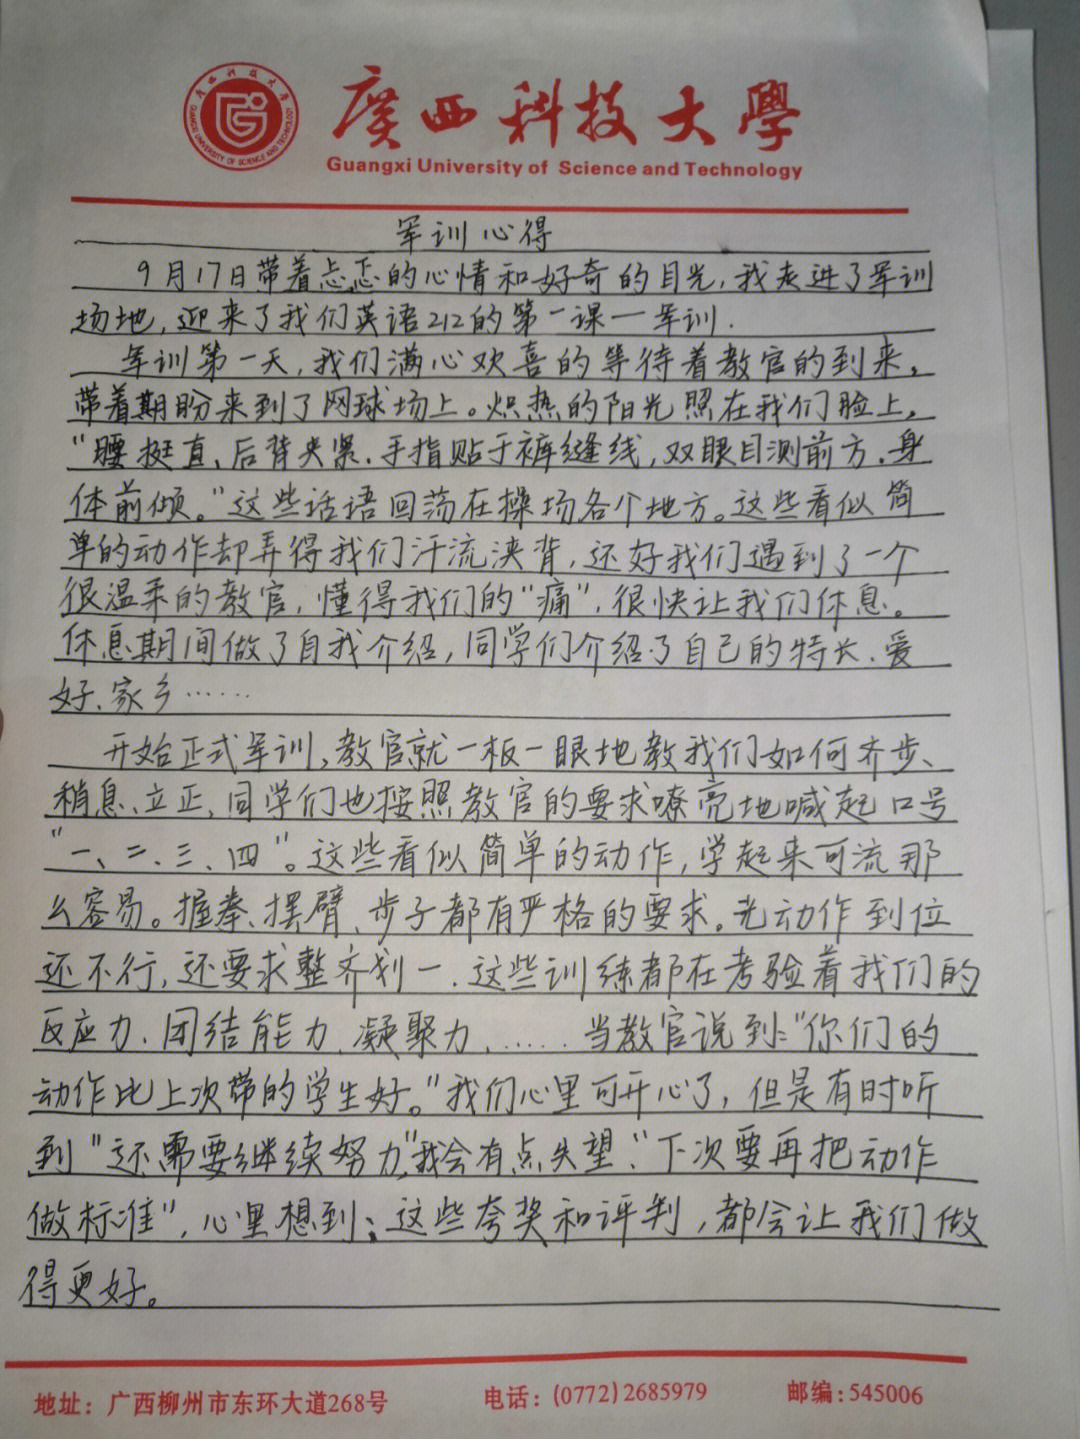 廣西科技大學
Guangxi University of Science and Technology
军训心得
9月17日带着忐忑的心情和好奇的目光,我走进了军训
场地,迎来了我们英语212的第一课一军训.
军训第一天,我们满心欢喜的等待着教官的到来,
带着期盼来到了网球场上。炽热的阳光照在我们脸上,
"腰挺直、后背夹紧、手指贴于裤缝线,双眼目测前方、身
体前倾。"这些话语回荡在操场各个地方。这些看似简
单的动作却弄得我们汗流浃背,还好我们遇到了一个
很温柔的教官,懂得我们的"痛",很快让我们休息。
休息期间做了自我介绍,同学们介绍了自己的特长、爱
好、家乡……
开始正式军训,教官就一板一眼地教我们如何齐步、
稍息、立正、同学们也按照教官的要求嘹亮地喊起口号
"一、二、三、四"。这些看似简单的动作,学起来可流那
么容易。握拳、摆臂、步子都有严格的要求。光动作到位
还不行,还要求整齐划一、这些训练都在考验着我们的
反应力、团结能力、凝聚力、……当教官说到:"你们的
动作比上次带的学生好。"我们心里可开心了,但是有时听
到"还需要继续努力",我会有点失望、"下次要再把动作
做标准",心里想到:这些夸奖和评判,都会让我们做
得更好。
地址:广西柳州市东环大道268号 电话:(0772)2685979 邮编:545006